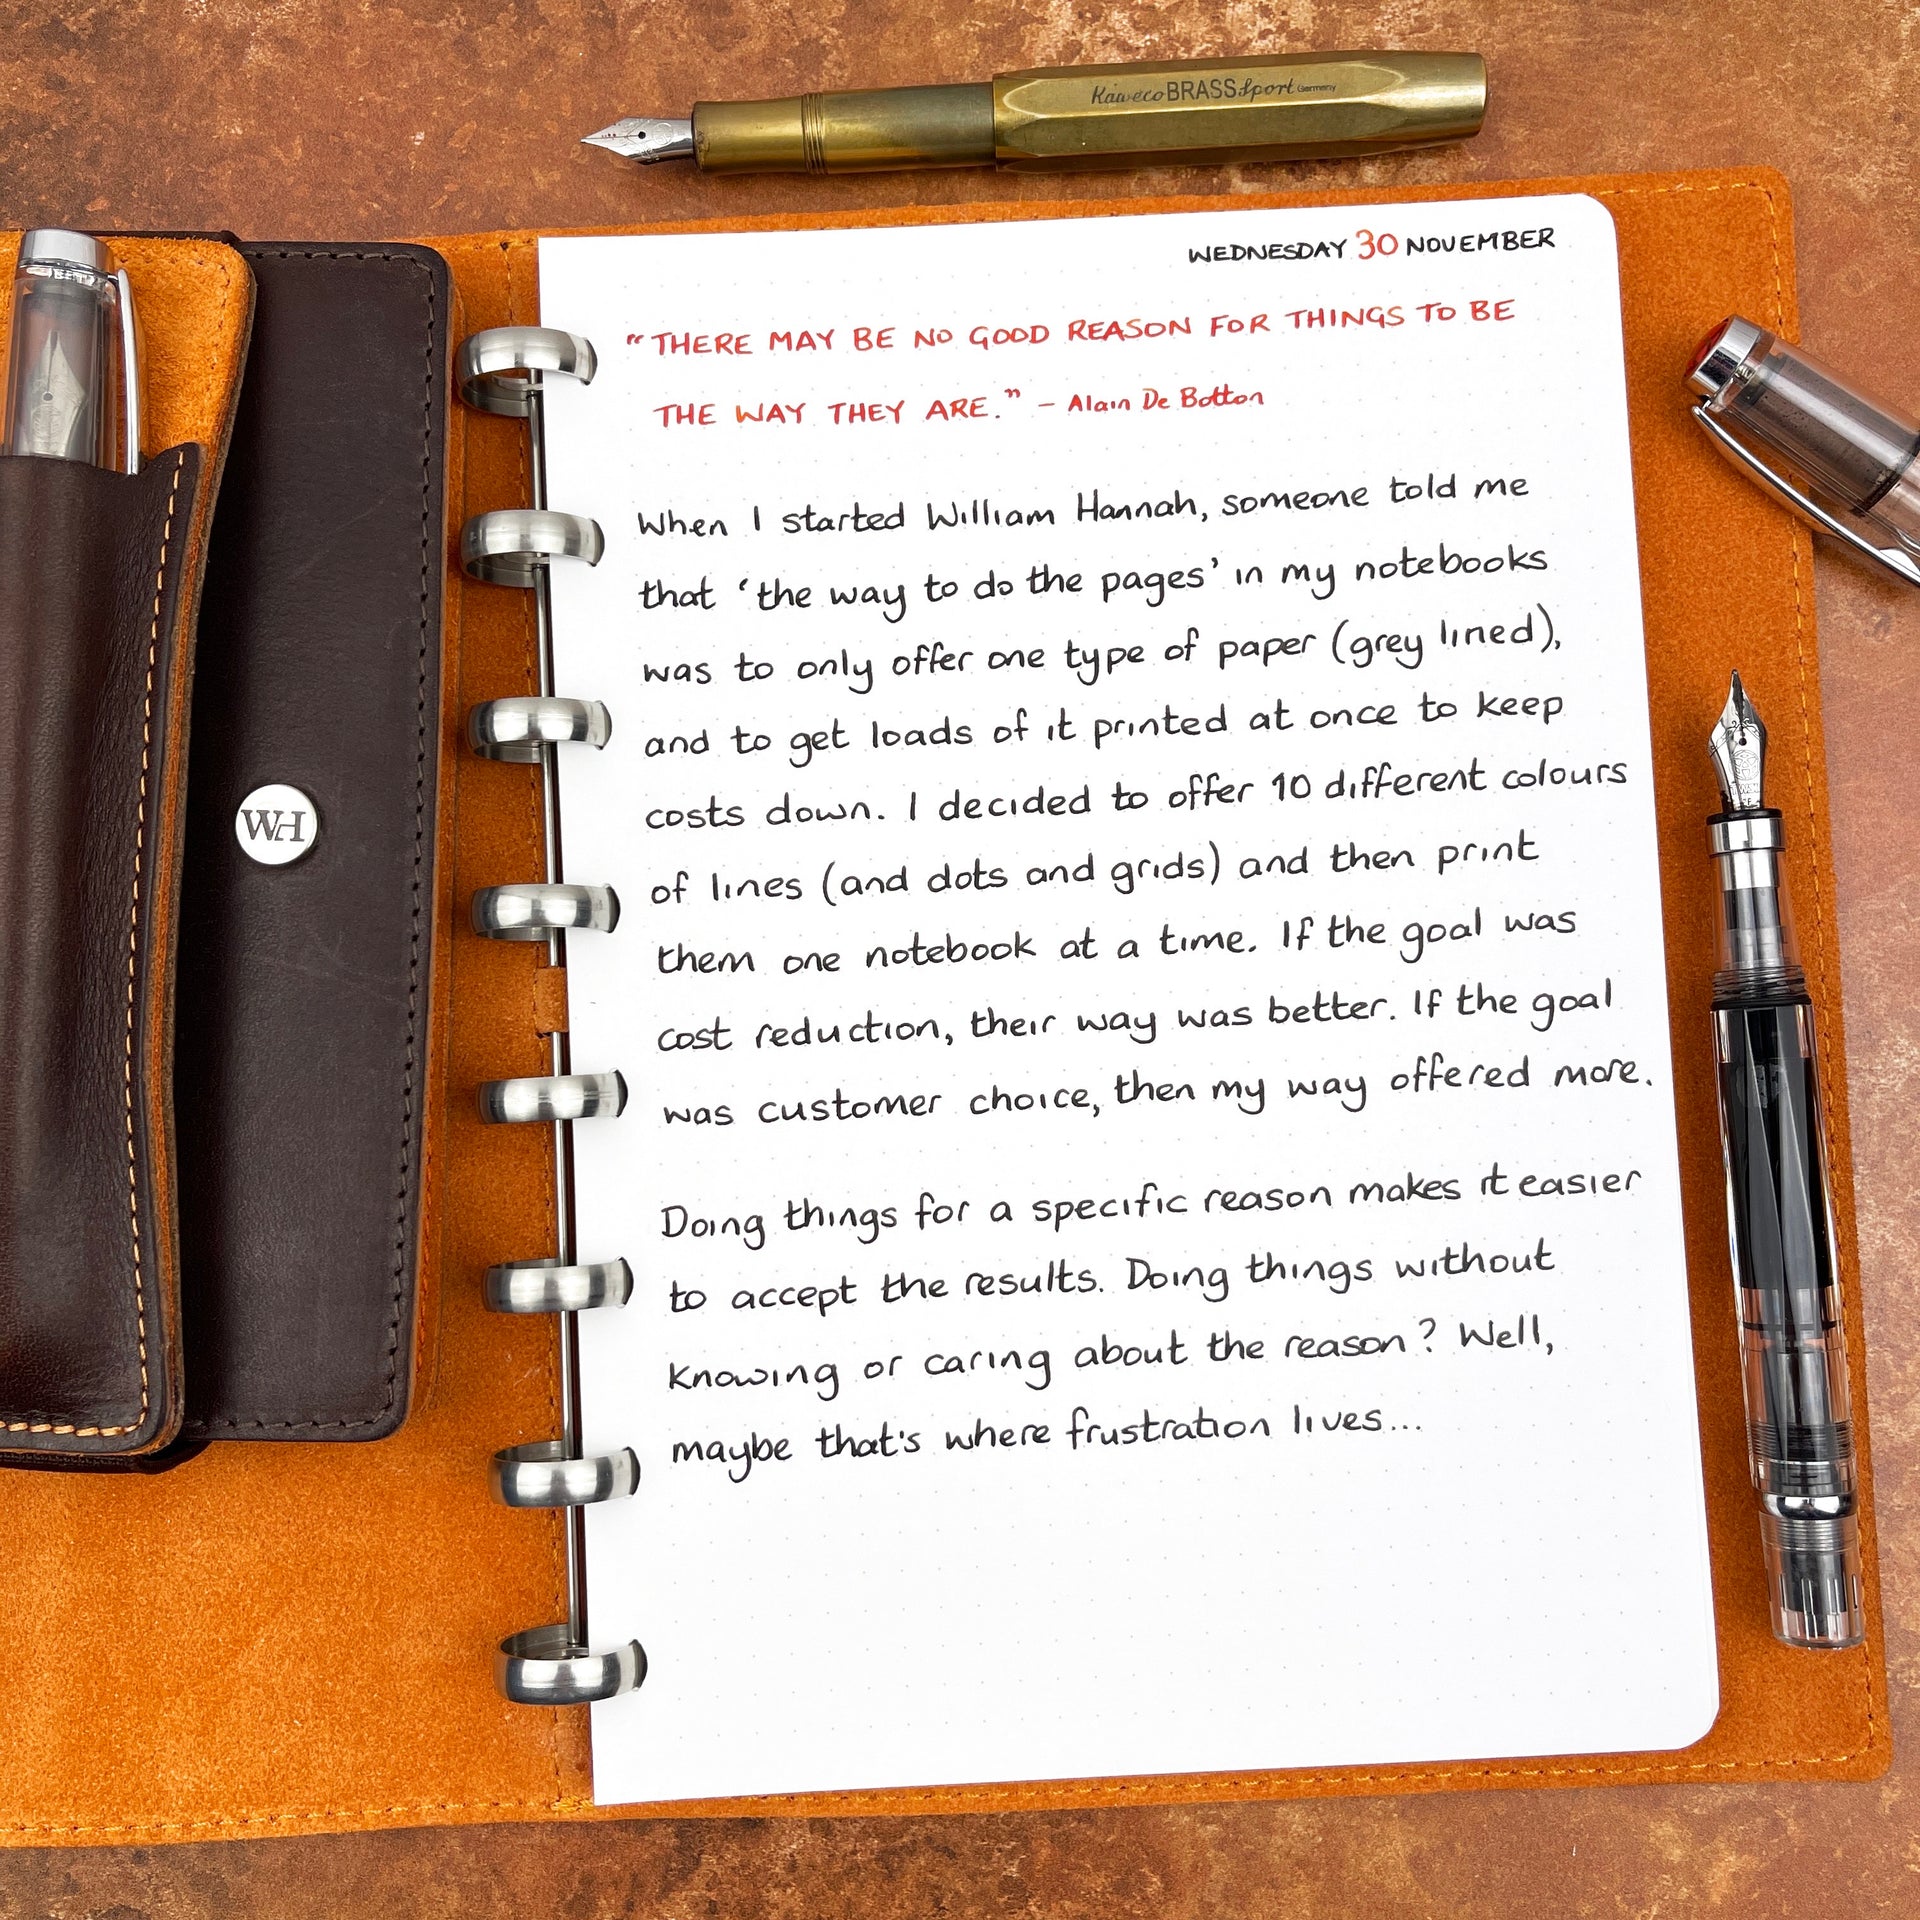 Kaweco BRASS Sport Germany
WEDNESDAY 30 NOVEMBER
"THERE MAY BE NO GOOD REASON FOR THINGS TO BE
THE WAY THEY ARE." - Alain De Botton
When I started William Hannah, someone told me
that 'the way to do the pages' in my notebooks
was to only offer one type of paper (grey lined),
and to get loads of it printed at once to keep
costs down. I decided to offer 10 different colours
of lines (and dots and grids) and then print
them one notebook at a time. If the goal was
cost reduction, their way was better. If the goal
was customer choice, then my way offered more.
Doing things for a specific reason makes it easier
to accept the results. Doing things without
knowing or caring about the reason? Well,
maybe that's where frustration lives...
WH